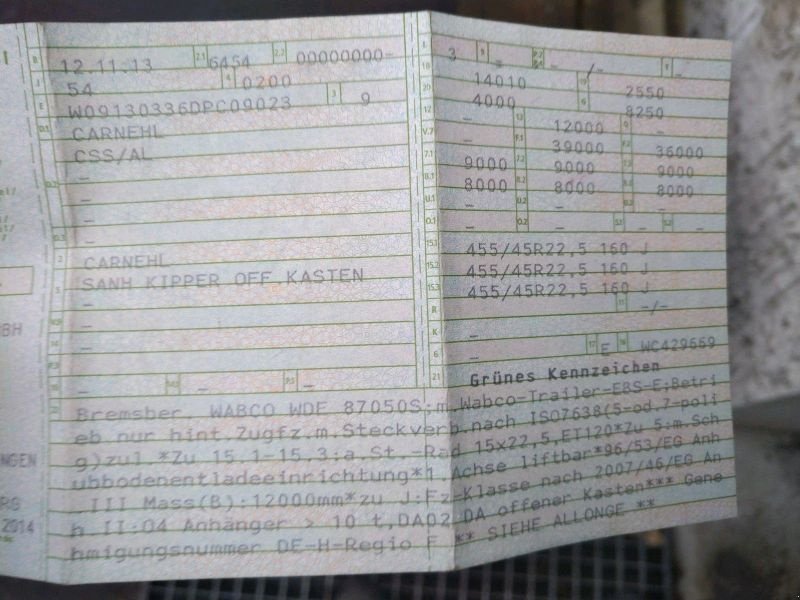 B 12.11.13 2.1 6454 2.2 00000000-
J 54 4 0200
E W09130336DPC09023 3 9
D.1 CARNEHL
CSS/AL
-
D.2 -
-
D.3 -
2 CARNEHL
5 SANH KIPPER OFF KASTEN
-
V.9 -
14 -
P.3 -
10 - P.5 -
L 3 9 - -
18 14010 19 2550
20 4000 G 8250
12 - 13 - Q -
V.7 - F.1 12000
7.1 9000 39000 F.2 36000
8.1 8000 7.2 9000 7.3 9000
U.1 - 8.2 8000 8.3 8000
O.1 - O.2 - S.1 - S.2 -
15.1 455/45R22,5 160 J
15.2 455/45R22,5 160 J
15.3 455/45R22,5 160 J
R - 11 -/-
K -
6 - 17 E 16 WC429669
21 Grünes Kennzeichen
Bremsber. WABCO WDF 87050S:m.Wabco-Trailer-EBS-E;Betri
eb nur hint.Zugfz.m.Steckverb.nach ISO7638(5-od.7-poli
g)zul *Zu 15.1-15.3:a.St.-Rad 15x22,5,ET120*Zu 5:m.Sch
ubbodenentladeeinrichtung*1.Achse liftbar*96/53/EG Anh
III Mass(B):12000mm*zu J:Fz-Klasse nach 2007/46/EG An
h II:O4 Anhänger > 10 t,DA02 DA offener Kasten*** Gene
hmigungsnummer DE-H-Regio F ** SIEHE ALLONGE **
BH
NGEN
RG
2014